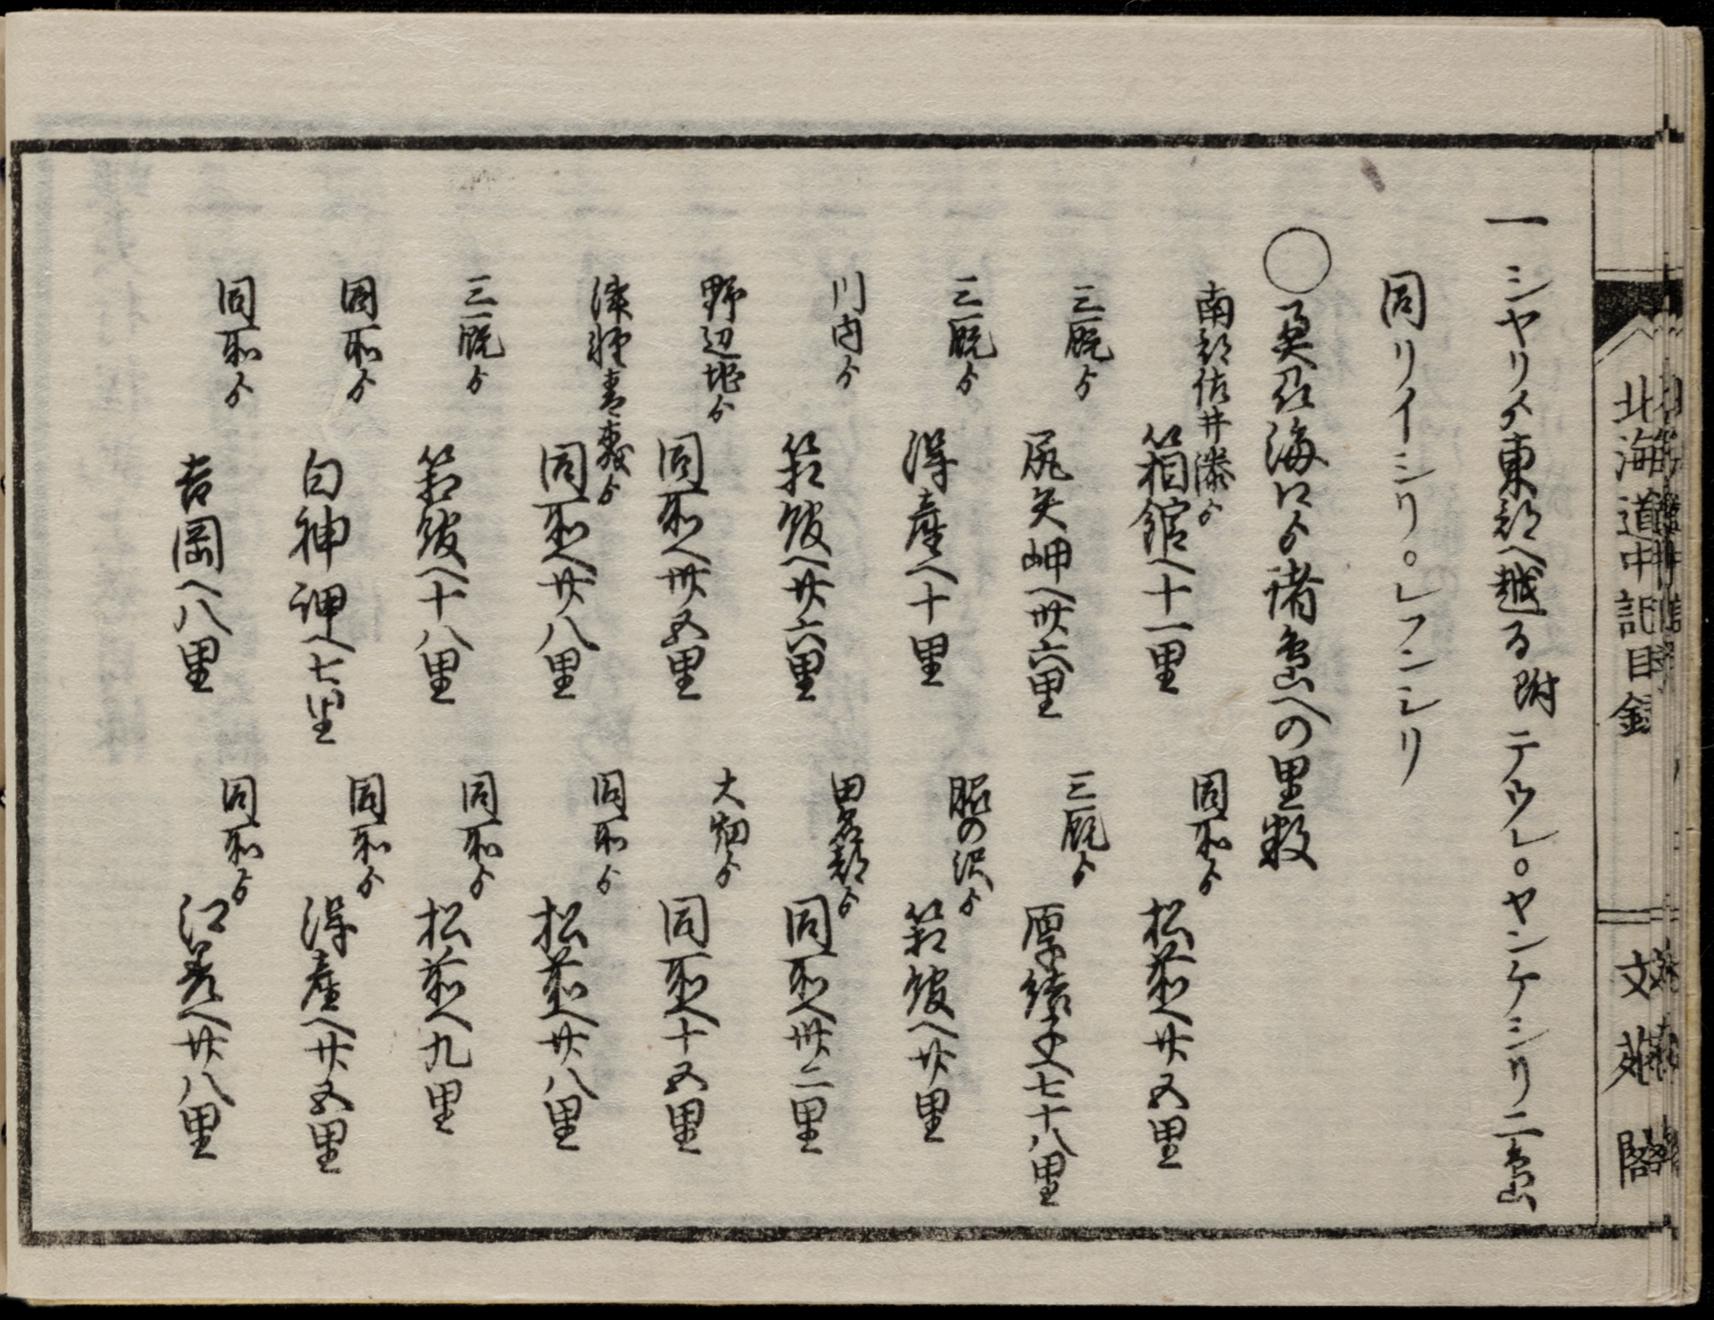 北海道中記目録
文苑閣
一シヤリヨリ東部へ越る附テウレ。ヤンケシリ二島
同リイシリ。レフンシリ
○奥羽海口ゟ諸島への里数
南部佐井湊ゟ
箱館へ十一里
同所ゟ
松前へ廿五里
三厩ゟ
尻矢岬へ卅六里
三厩ゟ
厚績子へ七十八里
三厩ゟ
淂産へ十里
脇の沢ゟ
箱館へ廿里
川内ゟ
箱館へ廿六里
田名部ゟ
同所へ卅二里
野辺地ゟ
同所へ卅五里
大畑ゟ
同所へ十五里
津軽青森ゟ
同所へ廿八里
同所ゟ
松前へ廿八里
三厩ゟ
箱館へ十八里
同所ゟ
松前へ九里
同所ゟ
白神岬へ七里
同所ゟ
淂産へ廿五里
同所ゟ
吉岡へ八里
同所ゟ
江差へ廿八里